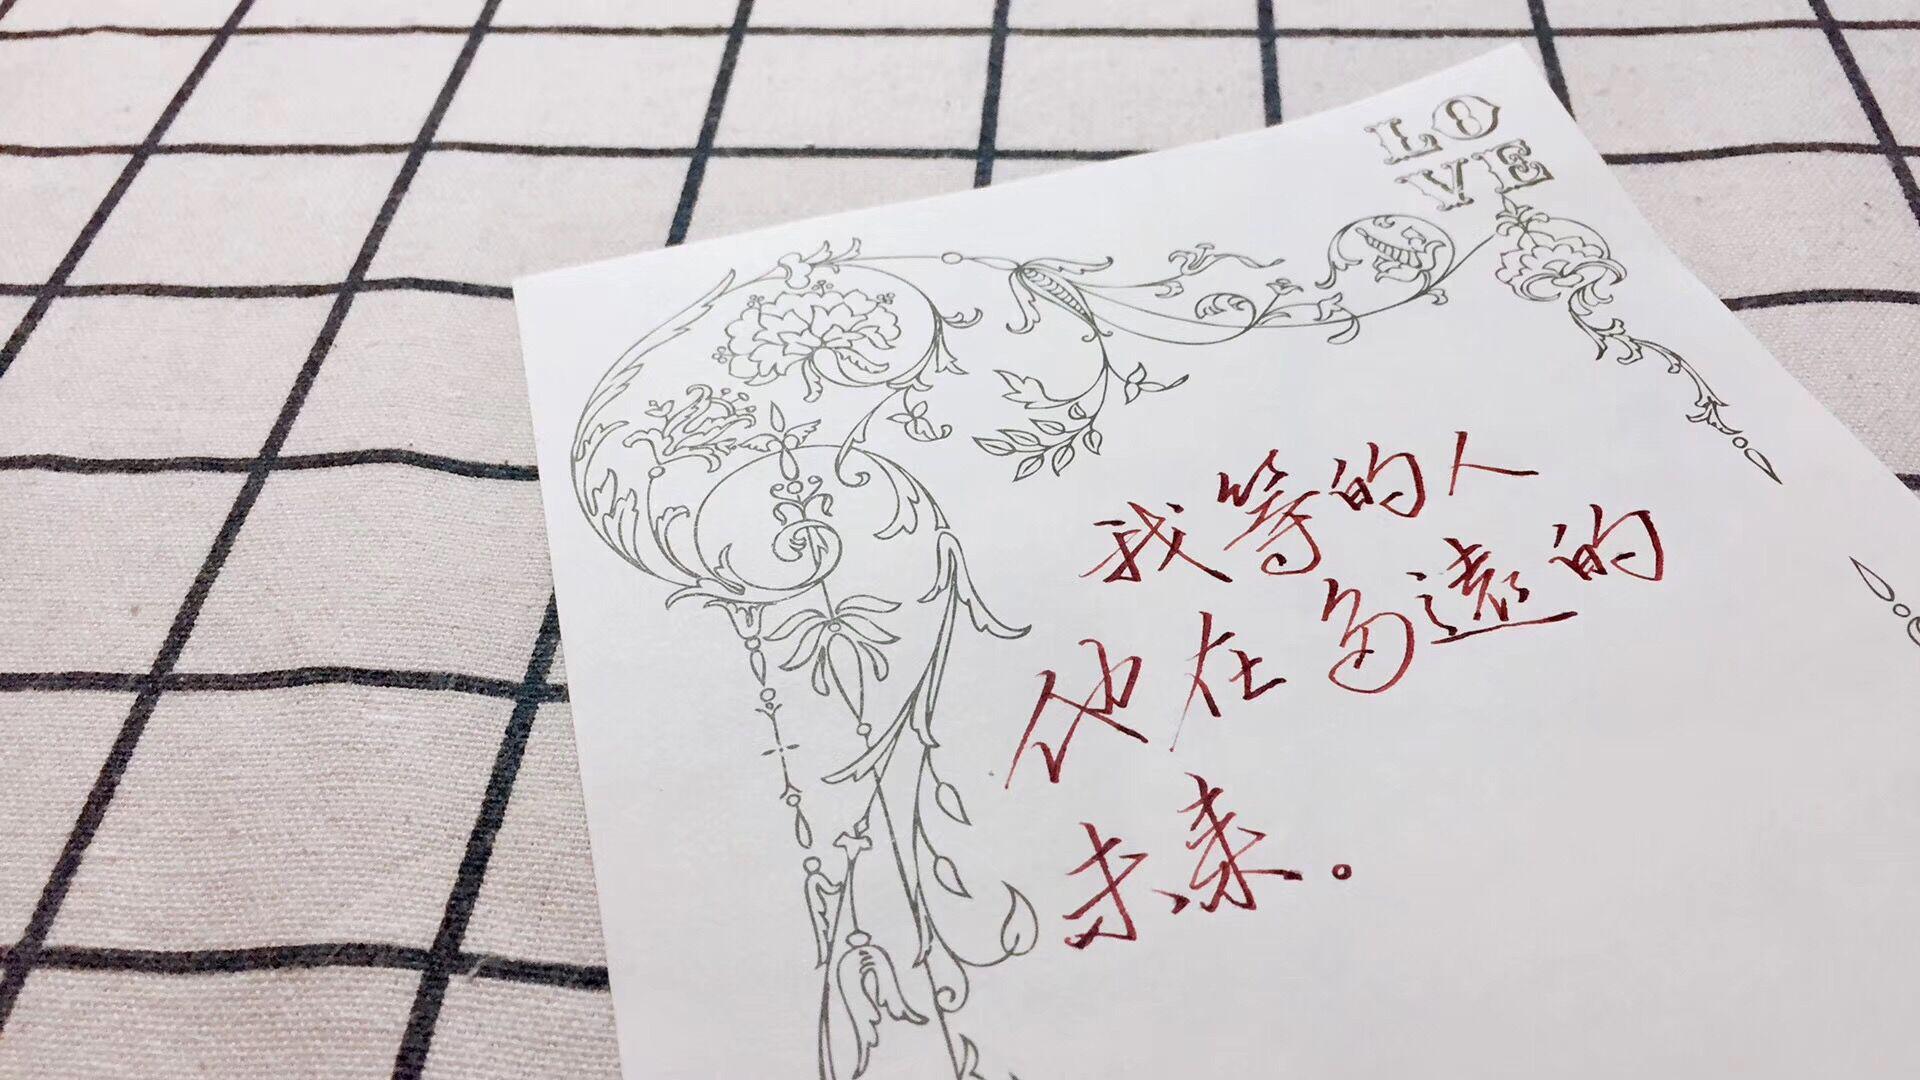 LO
VE
我等的人
他在多遠的
未来。